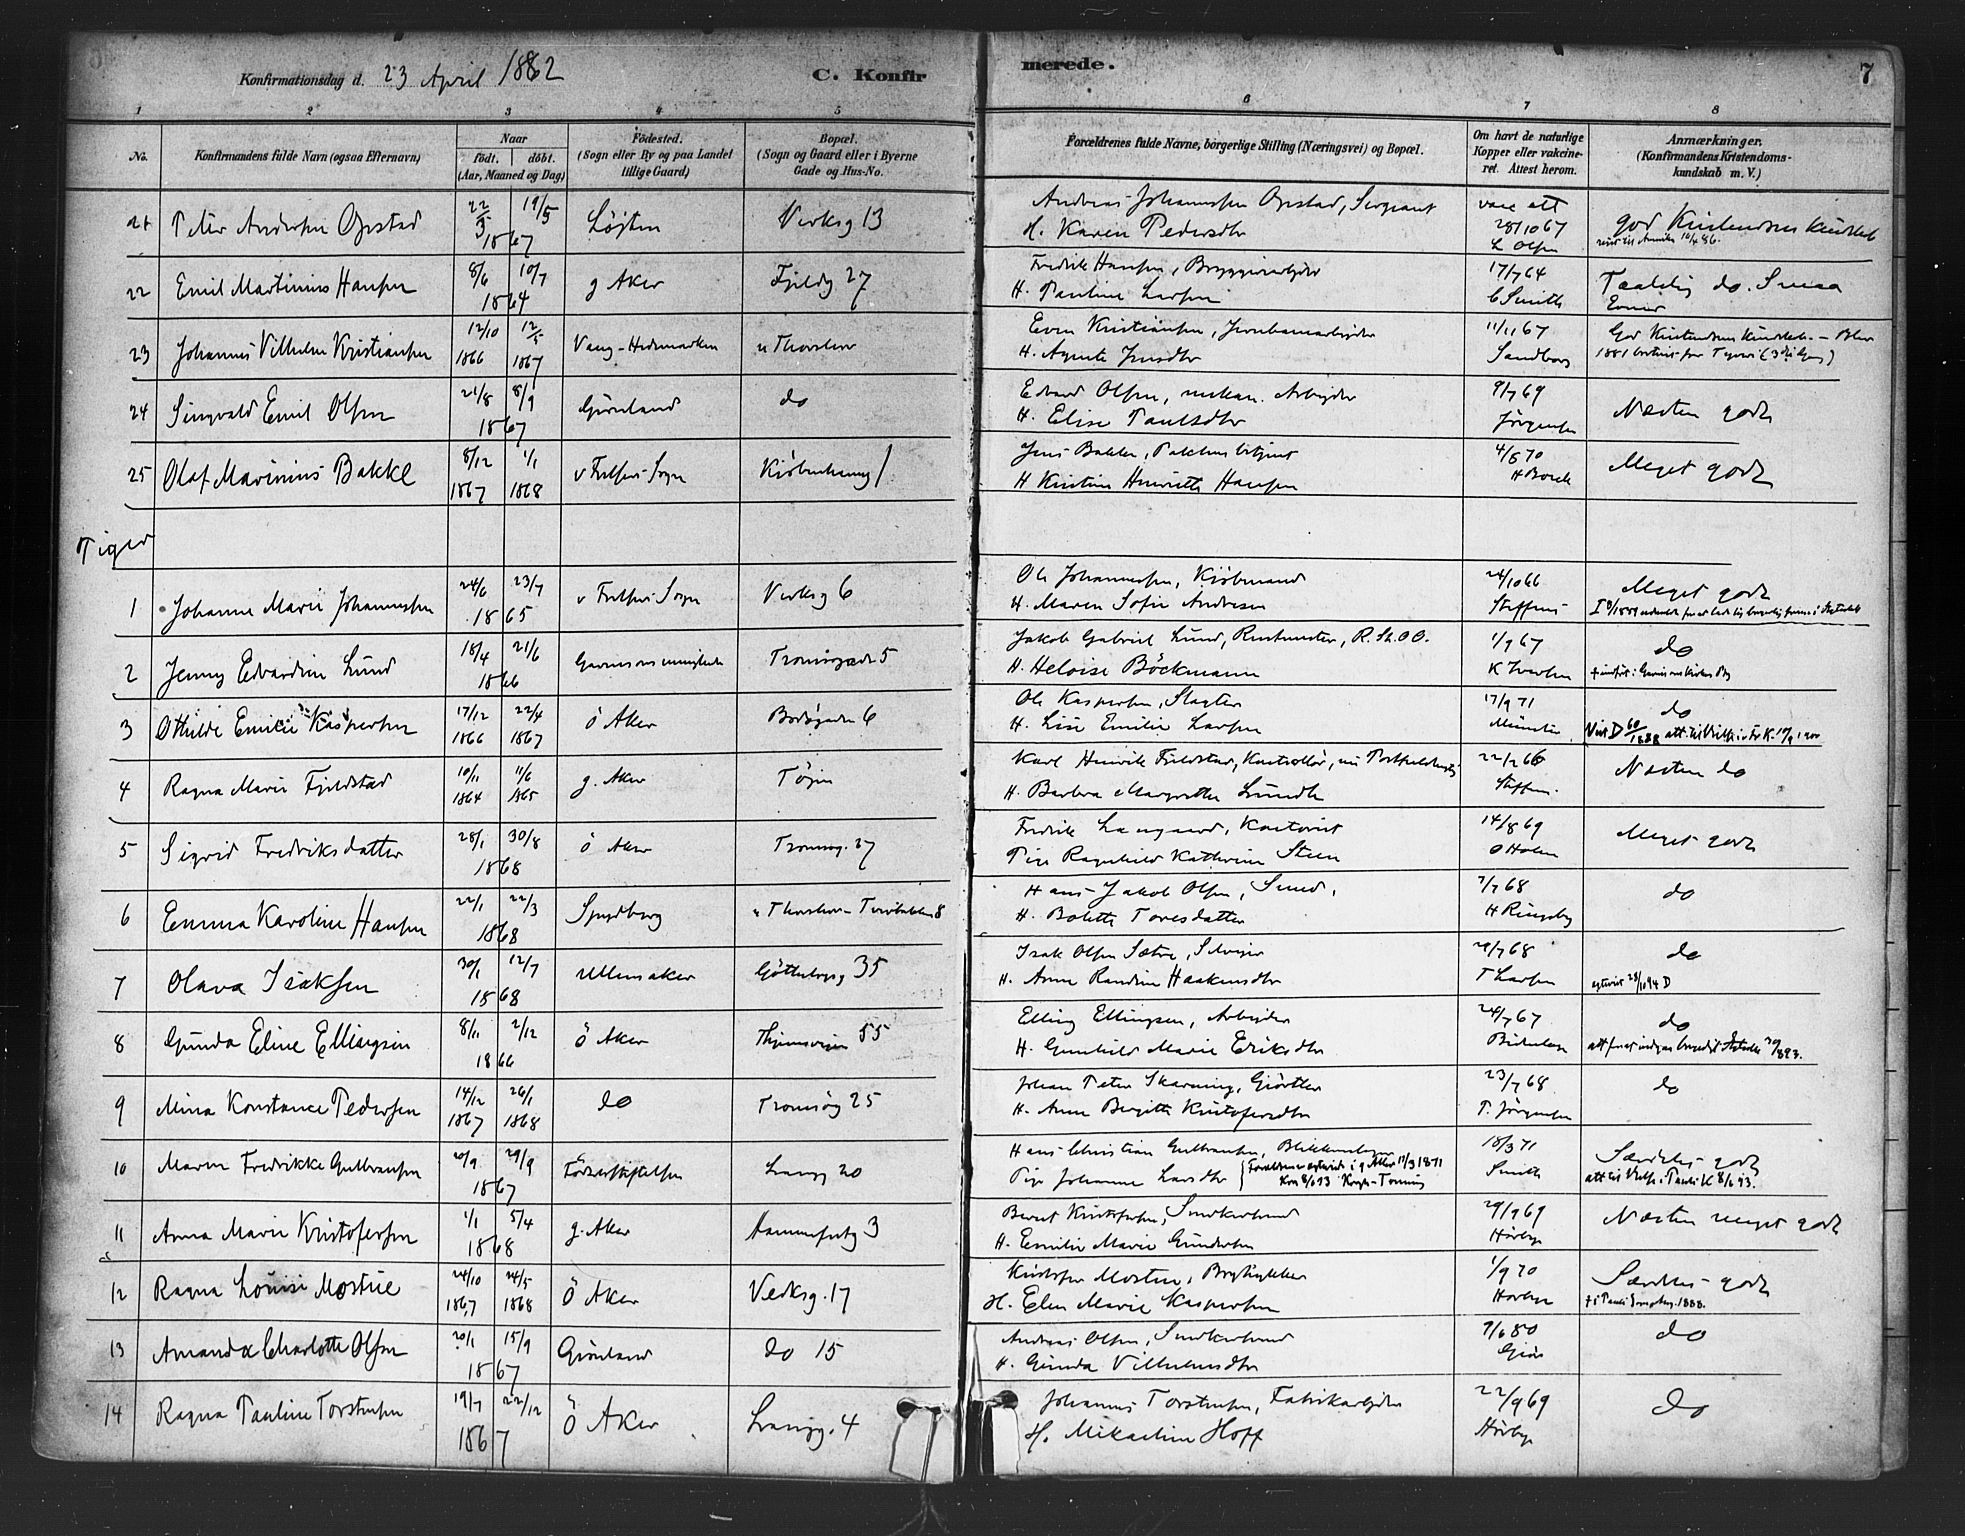 Konfirmationsdag d. 23 April 1882 C. Konfirmerede. 7
1 2 3 4 5 6 7 8
No. Konfirmandens fulde Navn (ogsaa Efternavn) Naar födt. döbt. (Aar, Maaned og Dag) Födested. (Sogn eller By og paa Landet tillige Gaard) Bopæl. (Sogn og Gaard eller i Byerne Gade og Hus-No. Forældrenes fulde Navne, börgerlige Stilling (Næringsvei) og Bopæl. Om havt de naturlige Kopper eller vakcineret. Attest herom. Anmærkninger. (Konfirmandens Kristendomskundskab m. V.)
21 Peter Andersen Opstad 22/3 19/5 1867 Löjten Verksg 13 Andreas Johannesen Opstad, Sergeant vacc att god Kristendomskundskab
H. Karen Pedersdtr 28/10 67 L Olsen
22 Emil Martinius Hansen 8/6 10/7 1864 g Aker Fjeldg 27 Fredrik Hansen, Bryggeriarbeider 17/7 64 Taalelig do. Smaa Evner
H. Pauline Larsen C Smith
23 Johannes Vilhelm Kristiansen 12/10 1866 12/5 1867 Vang-Hedemarken n Thorshov Even Kristiansen, Jernbanearbeider 11/11 67 God Kristendomskundskab
H. Agnete Jensdtr Sandberg 1881
24 Singvald Emil Olsen 21/8 8/9 1867 Grönland do Edvard Olsen, mekan. Arbeider 9/7 69 Næsten godt
H. Elise Paulsdtr Jörgensen
25 Olaf Marinius Bakke 8/12 1867 1/1 1868 v Frelsers Sogn Kjöbenhavng 1 Jens Bakke, Pakhusbetjent 4/8 70 Meget godt
H Kristine Henriette Hansen H Borch
Piger
1 Johanne Marie Johannesen 24/6 23/7 1865 v Frelsers Sogn Verksg 6 Ole Johannesen, Kjöbmand 24/10 66 Meget godt
H. Maren Sofie Andresen Steffens
2 Jenny Edvardine Lund 18/4 21/6 1866 Garnisonsmenighed Tromsögade 5 Jakob Gabriel Lund, Rustmester, R. St. O O. 1/9 67 do
H. Heloise Böckmann K Iversen
3 Othilde Emilie Kaspersen 17/12 1866 22/4 1867 ö Aker Bodögaden 6 Ole Kaspersen, Slagter 17/9 71 do
H. Lise Emilie Larsen Münster
4 Ragna Marie Fjeldstad 10/11 1864 11/6 1865 g. Aker Töyen Karl Henrik Fjeldstad, Kontrollör, 22/2 66 Næsten do
H. Barbra Margrethe Lunde Steffens
5 Sigrid Fredriksdatter 28/1 30/8 1868 ö Aker Tromsg. 27 Fredrik Langaard, Kontorist 14/8 69 Meget godt
Pige Ragnhild Kathrine Steen O Holm
6 Emma Karoline Hansen 22/1 22/3 1868 Spydberg n Thorshov 8 Hans Jakob Olsen, Smed, 7/7 68 do
H. Bolette Toresdatter H Ringeby
7 Olava Isaksen 30/1 12/7 1868 Ullensaker Götteborgg 35 Isak Olsen Sætre, Selveier 29/7 68 do
H. Anne Randine Haakensdtr T Larsen 23/10 94 D
8 Gunda Eline Ellingsen 8/11 2/12 1866 Ö Aker 55 Elling Ellingsen, Arbeider 24/7 67 do
H. Gunhild Marie Eriksdtr
9 Mina Konstance Pedersen 14/12 1867 26/1 1868 do Tromsög 25 Johan Peter Skarning, Gjörtler 23/7 68 do
H. Anne Birgitte Kristofersdtr T. Jörgensen
10 Maren Fredrikke Gulbransen 20/9 29/9 1867 Födselsstiftelsen Langg 20 Hans Christian Gulbransen, Blikkenslager 18/3 71 Særdeles godt
Pige Johanne Larsdtr Smith
11 Anna Marie Kristofersen 1/1 5/4 1868 g. Aker Hammerfestg 3 Bernt Kristofersen, Snedkersvend 29/9 69 Næsten meget godt
H. Emilie Marie Gundersen Hörbye
12 Ragna Louise Mostue 24/10 1867 24/5 1868 Ö Aker Verksg. 17 Kristofer Mostue, 1/9 70 Særdeles godt
H. Elen Marie Kaspersen Hörbye
13 Amanda Charlotte Olsen 20/1 15/9 1867 Grönland do 15 Andreas Olsen, Snedkersvend 9/6 80 do
H. Gunda Vilhelmsdtr
14 Ragna Pauline Torstensen 19/7 22/12 1867 Ö Aker Langg. 4 Johannes Torstensen, Fabrikarbeider 22/9 69 do
H. Mikaeline Hoff Hörbye